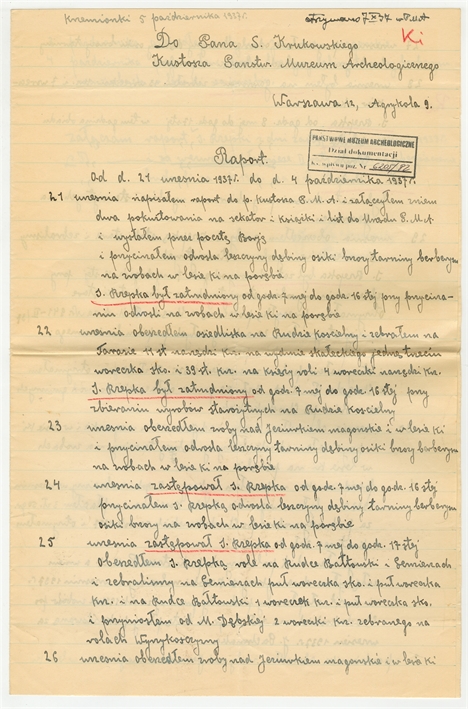 Krzemionki 5 października 1937r.
otrzymano 7 X 37 w P.M.A
Ki
Do Pana S. Krukowskiego
Kustosza Państw. Muzeum Archeologicznego
Warszawa 12, Agrykola 9.
PAŃSTWOWE MUZEUM ARCHEOLOGICZNE
Dział dokumentacji
Raport.
Od d. 21 wresnia 1937r. do d. 4 października 1937r.
21 wresnia napisałem raport do p. Kustosza P.M.A. i załączyłem z niem
dwa pokwitowania na sekator i książki i list do Urzędu P.M.A
i wysłałem przez pocztę
i przycinałem odrosla leszczyny dębiny osiki brozy tarniny berberym
na zrobach w lesie ki na porębie
J. Rzepka był zatrudniony od godz. 7 mej do godz. 16 stej przy przycina-
niu odrosli na zrobach w lesie ki na porębie
22 wresnia obeszedłem osiedliska na Rudzie Kościelny i zebrałem na
Tarasie 11 st narzędzi Krz. na wydmie skałeckiego jedną trzecią
woreczka sko. i 39 st. krz. na Księży roli 4 woreczki narzędzi Krz.
J. Rzepka był zatrudniony od godz. 7 mej do godz. 16 stej przy
zbieraniu wyrobów starożytnych na Rudzie Kościelny
23 wresnia obeszedłem zroby nad Jeziorkiem magońskie i w lesie ki
i przycinałem odrosla leszczyny tarniny dębiny osiki brozy berberym
na zrobach w lesie ki na porębie
24 wresnia zastępował J. Rzepka od godz. 7 mej do godz. 16 stej
przycinałem z J. Rzepką odrosla leszczyny dębiny tarniny berberym
osiki brozy na zrobach w lesie ki na porębie
25 wresnia zastępował J. Rzepka od godz. 7 mej do godz. 17 stej
Obeszedłem z J. Rzepką role na Rudce Bałtowski i Pemienach
i zebralismy na Pemienach puł woreczka sko. i puł woreczka
krz. i na Rudce Bałtowski 1 woreczek krz. i puł woreczka sko.
i przyniosłem od M. Dębskiej 2 woreczki krz. zebranego na
rolach
26 wresnia obeszedłem zroby nad Jeziorkiem magońskie i w lesie ki